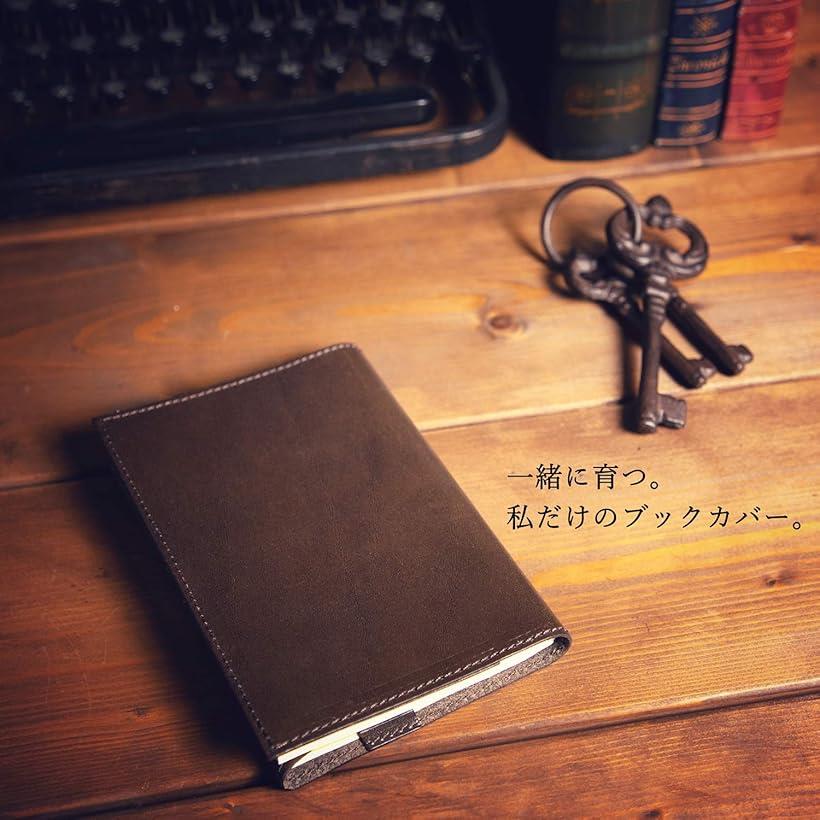 一緒に育つ。
私だけのブックカバー。